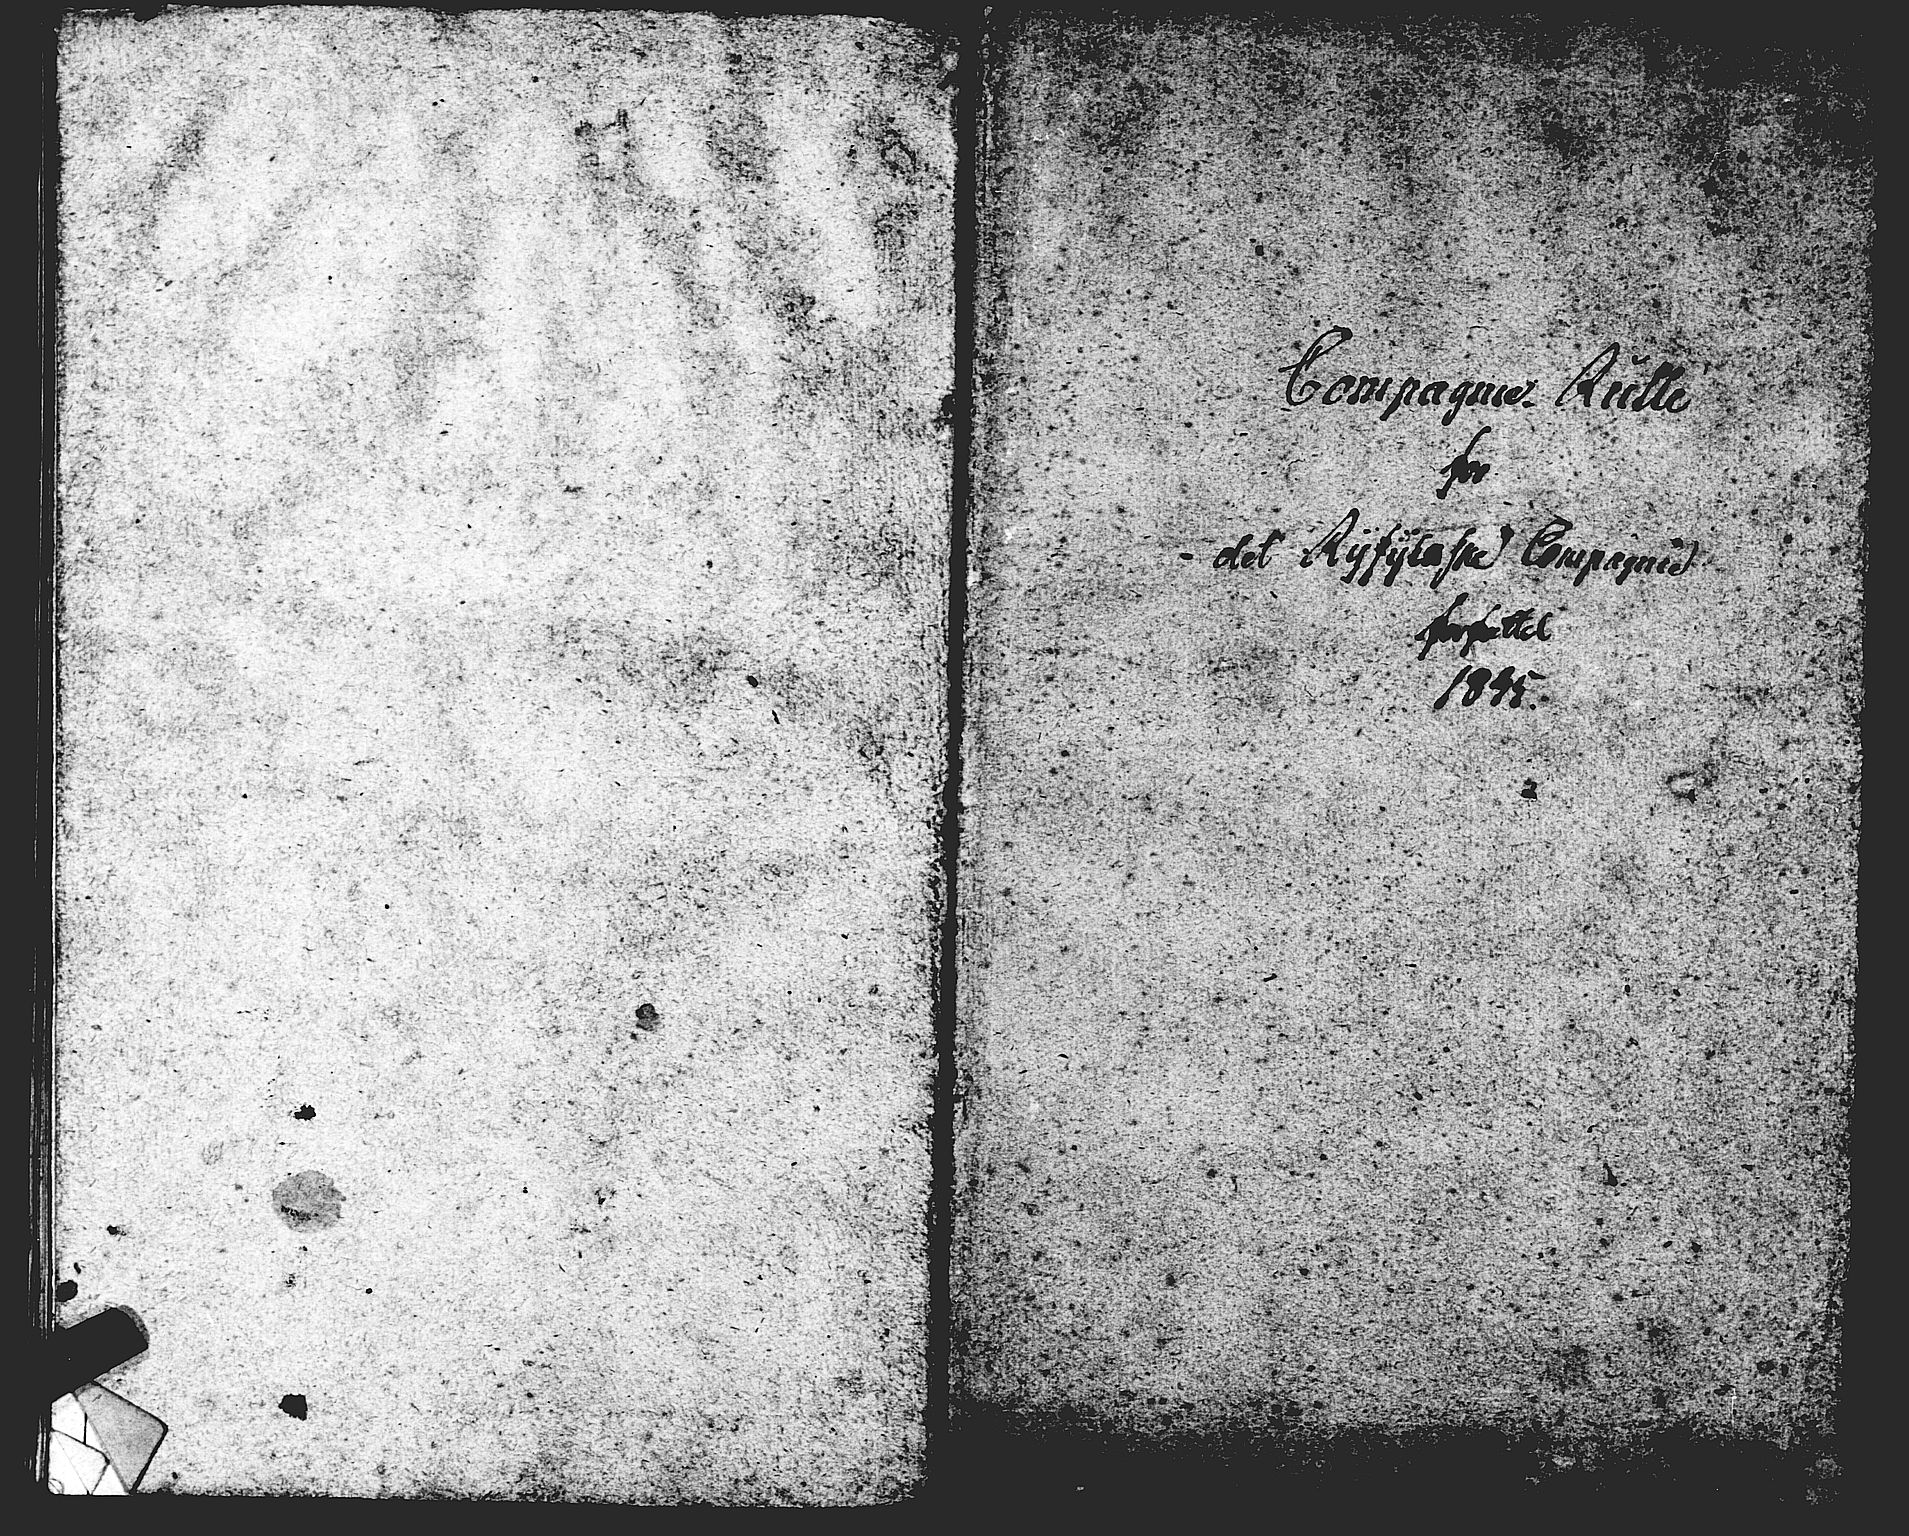 Compagnie-Rulle
for
det Ryfylkeske Compagnie
forfattet
1845.